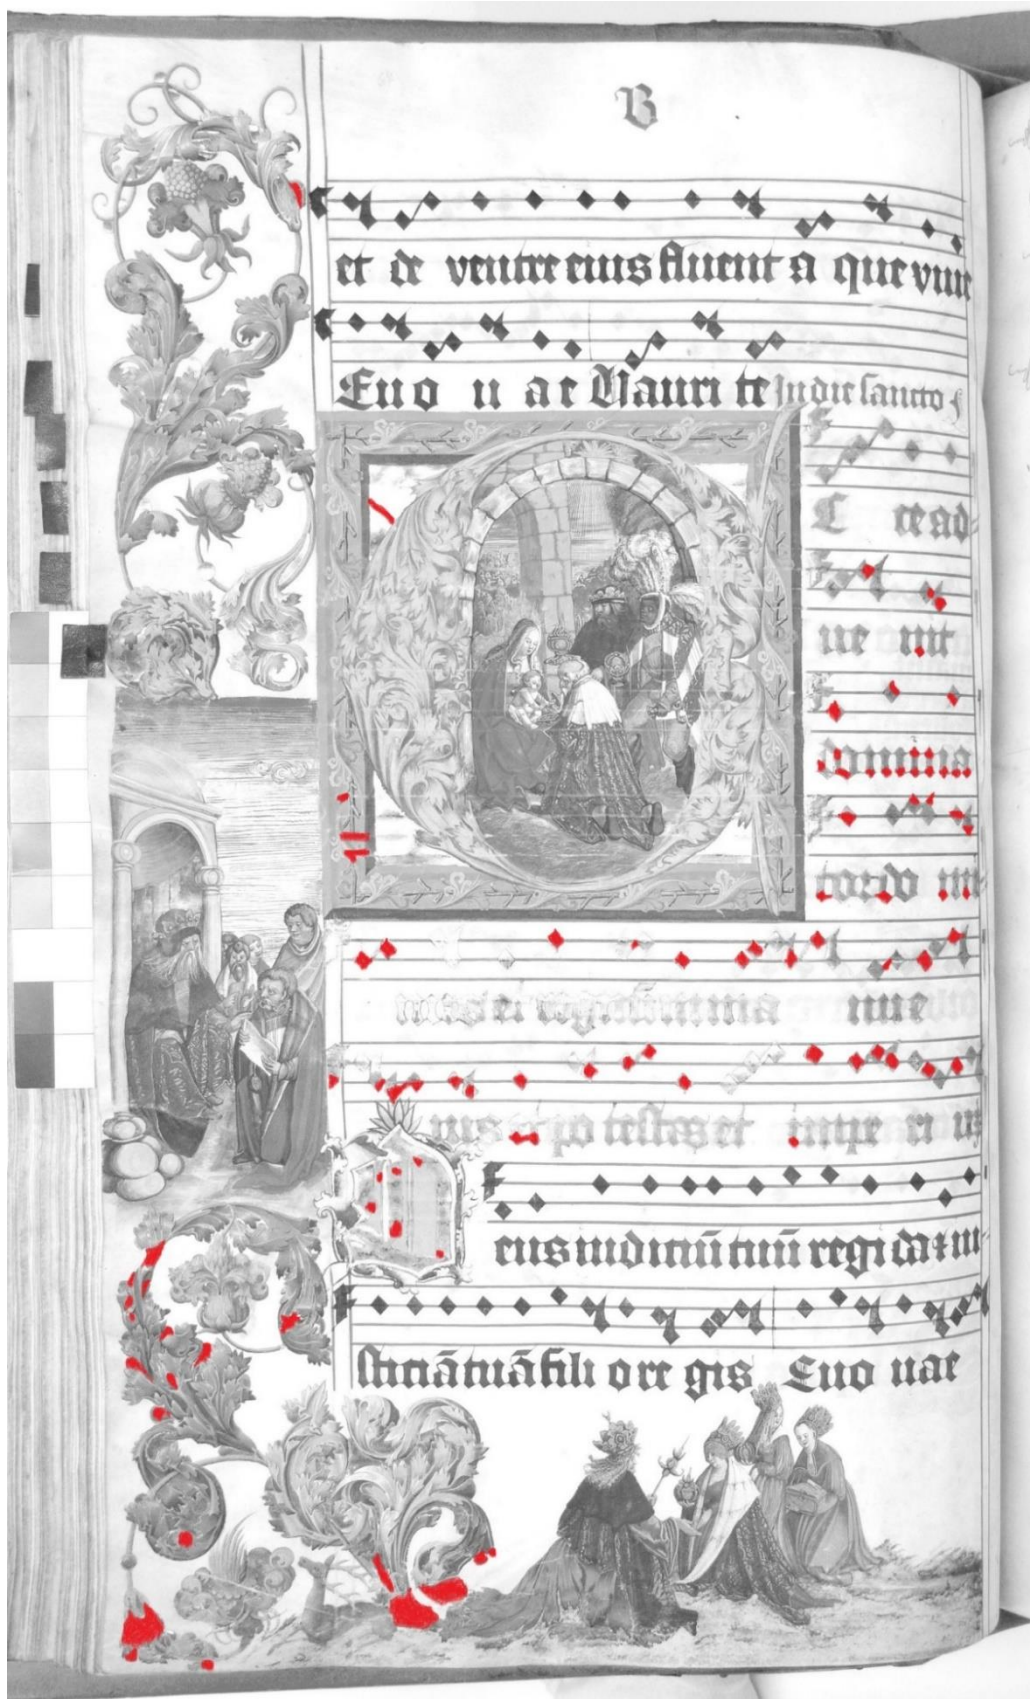 B
et de ventre eius fluent a que vive
Euo u a e Mauri te In die sancto
E cce ad
ue nit
domina
tor do mi
nus et regnum in ma nu e
ius et po testas et impe ri u
eus iudiciū tuū regi da & iu
sticiā tuā fili o re gis Euo uae